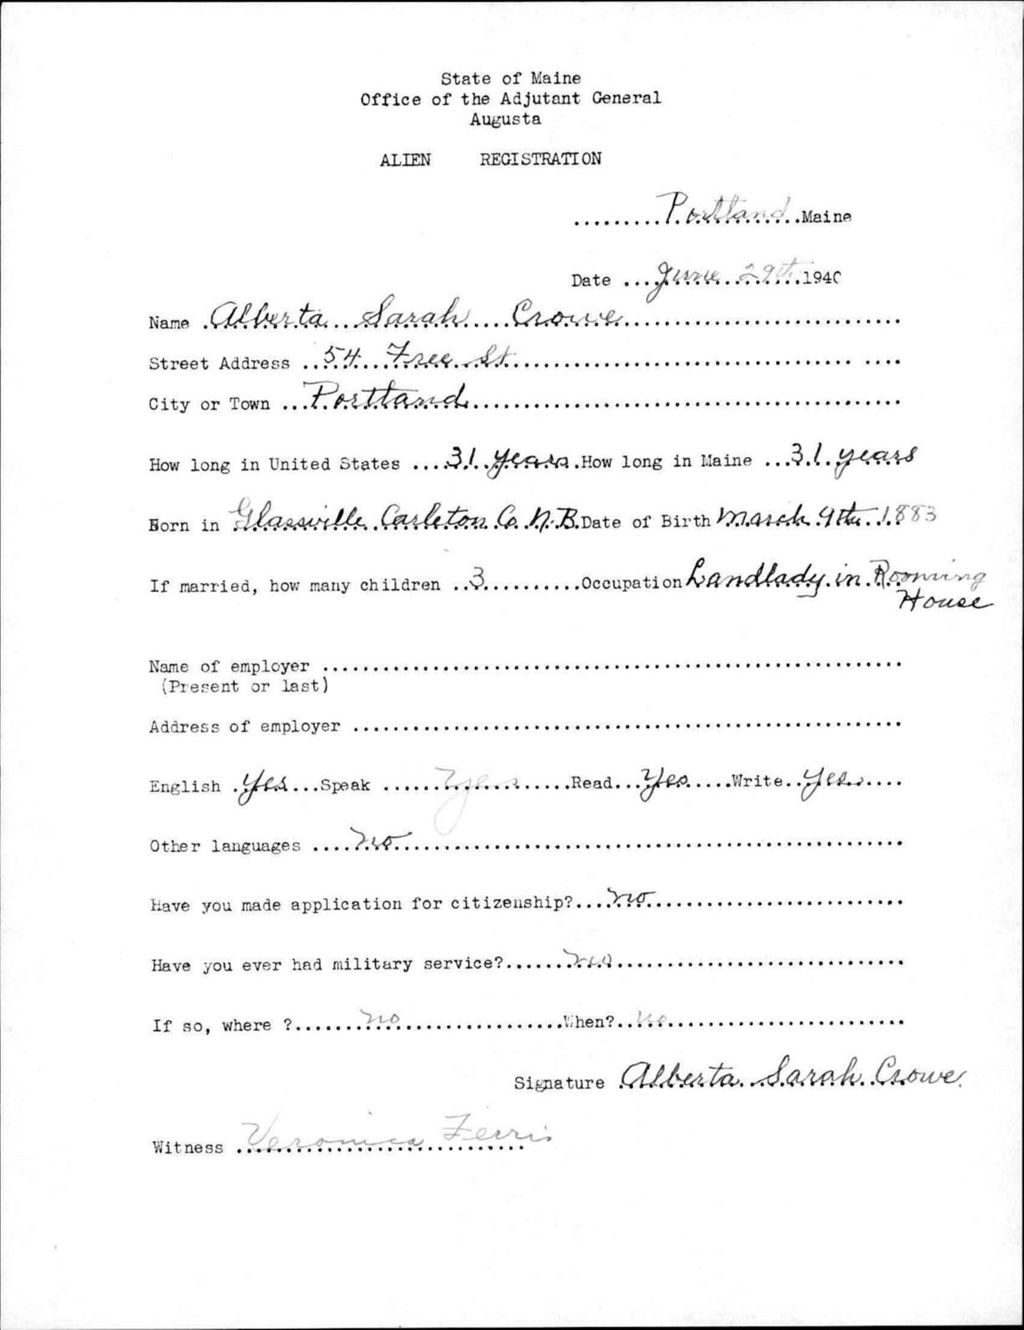 State of Maine
Office of the Adjutant General
Augusta
ALIEN REGISTRATION
Portland Maine
Date June 29th 1940
Name Alberta Sarah Crowe
Street Address 54 Free St
City or Town Portland
How long in United States 31 years How long in Maine 31 years
Born in Glassville Carleton Co. N.B. Date of Birth March 9th 1883
If married, how many children 3 Occupation Landlady in Rooming
House
Name of employer
(Present or last)
Address of employer
English Yes Speak Yes Read Yes Write Yes
Other languages no
Have you made application for citizenship? no
Have you ever had military service? no
If so, where ? no When? no
Signature Alberta Sarah Crowe
Witness Veronica Ferris